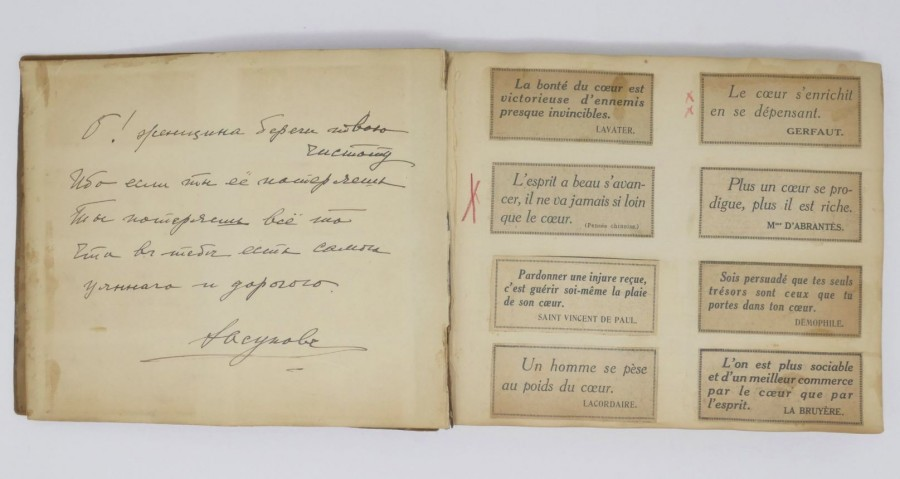 О! женщина береги твою
чистоту
Ибо если ты её потеряешь
Ты потеряешь всё то
Что въ тебе есть самое
ценнаго и дорогого.
La bonté du cœur est
victorieuse d'ennemis
presque invincibles.
LAVATER.
L'esprit a beau s'avan-
cer, il ne va jamais si loin
que le cœur.
(Pensée chinoise.)
Pardonner une injure reçue,
c'est guérir soi-même la plaie
de son cœur.
SAINT VINCENT DE PAUL.
Un homme se pèse
au poids du cœur.
LACORDAIRE.
Le cœur s'enrichit
en se dépensant.
GERFAUT.
Plus un cœur se pro-
digue, plus il est riche.
Mme D'ABRANTÈS.
Sois persuadé que tes seuls
trésors sont ceux que tu
portes dans ton cœur.
DÉMOPHILE.
L'on est plus sociable
et d'un meilleur commerce
par le cœur que par
l'esprit.
LA BRUYÈRE.